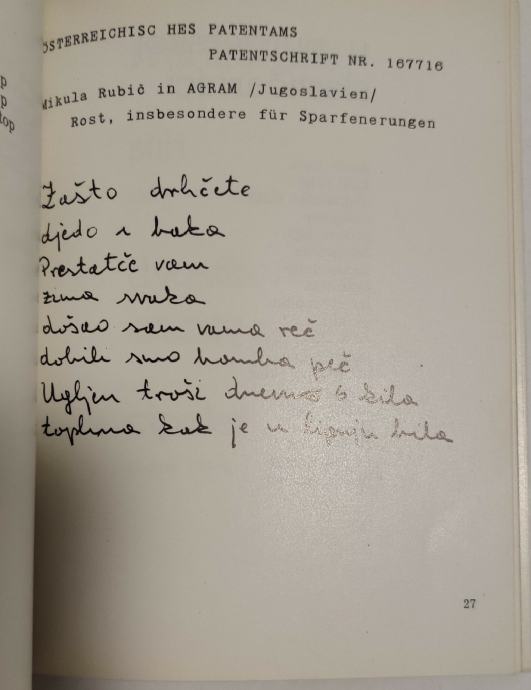 ÖSTERREICHISC HES PATENTAMS
PATENTSCHRIFT NR. 167716
Mikula Rubič in AGRAM /Jugoslavien/
Rost, insbesondere für Sparfenerungen
Zašto drhčete
djedo i baka
Prestatče vam
zima svaka
došao sam vama reč
dobili smo bomba peč
Ugljen troši dnevno 6 kila
toplina kak je u lipnju bila
27